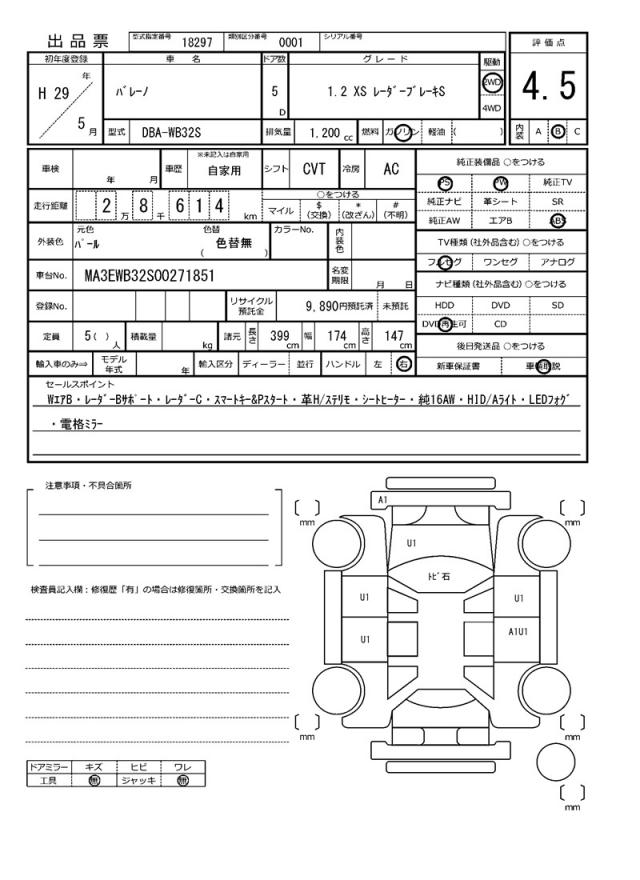 出品票
型式指定番号 18297 類別区分番号 0001 シリアル番号
評価点
4.5
初年度登録 車名 ドア数 グレード 駆動
H 29 年 5 月
バレーノ
5 D
1.2 XS レーダーブレーキS
2WD
4WD
型式 DBA-WB32S 排気量 1,200 cc 燃料 ガソリン 軽油 ( )
内装 A B C
車検 年 月 車歴 ※未記入は自家用 自家用 シフト CVT 冷房 AC
走行距離 2 万 8 千 6 1 4 km
○をつける
マイル $ (交換) * (改ざん) # (不明)
外装色 元色 パール 色替 ( 色替無 ) カラーNo. 内装色
車台No. MA3EWB32S00271851 名変期限 月 日
登録No. リサイクル預託金 9,890円預託済 未預託
定員 5( ) 人 積載量 kg 諸元 長さ 399 cm 幅 174 cm 高さ 147 cm
輸入車のみ⇒ モデル年式 年 輸入区分 ディーラー 並行 ハンドル 左 右
純正装備品 ○をつける
PS PW 純正TV
純正ナビ 革シート SR
純正AW エアB ABS
TV種類 (社外品含む) ○をつける
フルセグ ワンセグ アナログ
ナビ種類 (社外品含む) ○をつける
HDD DVD SD
DVD再生可 CD
後日発送品 ○をつける
新車保証書 車輌取説
セールスポイント
WエアB・レーダーBサポート・レーダーC・スマートキー&Pスタート・革H/ステリモ・シートヒーター・純16AW・HID/Aライト・LEDフォグ
・電格ミラー
注意事項・不具合箇所
検査員記入欄：修復歴「有」の場合は修復箇所・交換箇所を記入
ドアミラー キズ ヒビ ワレ
工具 無 ジャッキ 無
A1
mm
mm
U1
トビ石
U1
U1
U1
A1U1
mm
mm
mm